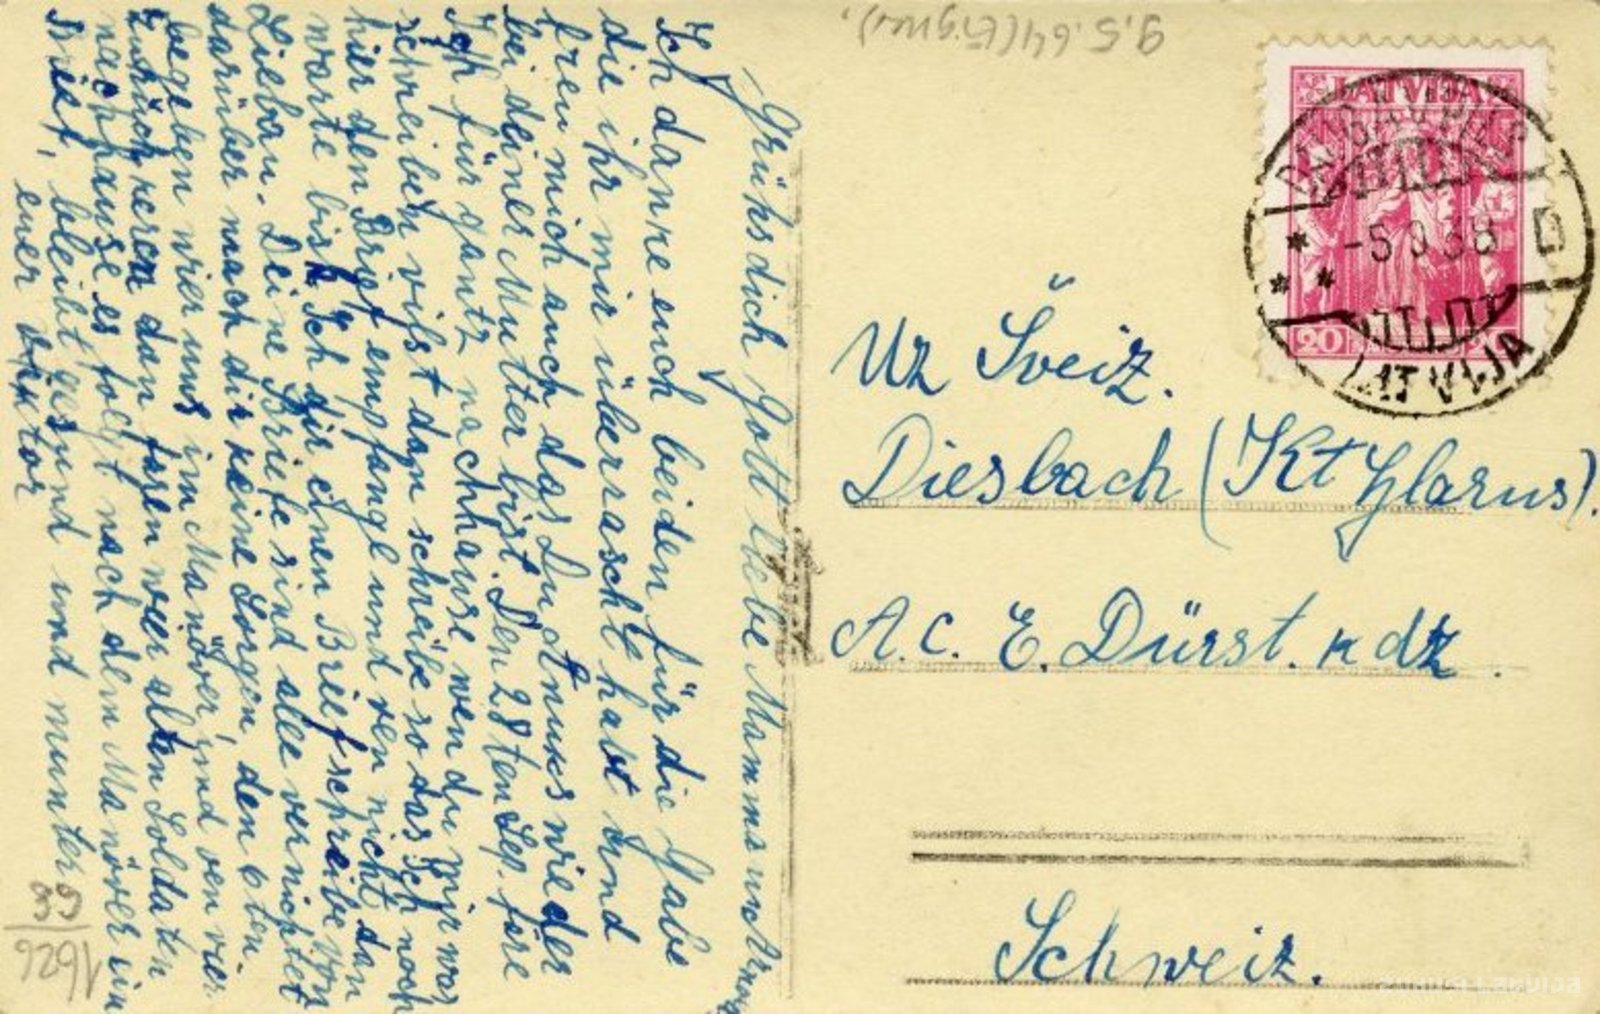 Grühs dich Gott liebe Mamma und Arnold
Ich danke euch beiden für die Gabe
die ihr mir überrascht habt und
freu mich auch das Du Otnuks wieder
bei deiner Mutter bist. Den 28ten Sep. före
Ich für gantz nachhause wen du mir was
schreiben vilst dan schreibe so das Ich noch
hier den Brief empfange und ven nicht dan
warte bis Ich dir einen Brief schreibe von
Liebau. Deine Briefe sind alle vernichtet
darüber mach dir keine Sorgen den 6ten
begeben wier uns im Manöver, und ven vier
zurück keren dan faren wier alten Soldaten
nachhause es folgt nach dem Manöver ein
Brief, bleibt gesund und munter
euer Viktor
9.5.64
LATVIJA
20
DAUGAVPILS
-5 9 38
LATVIJA
Uz Šveiz.
Diesbach (Kt Glarus).
A.C. E. Dürst. kdz.
Schweiz.
1626